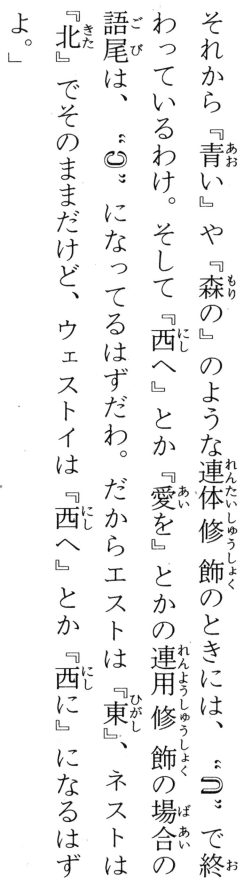 それから『青い』や『森の』のような連体修飾のときには、“”で終
わっているわけ。そして『西へ』とか『愛を』とかの連用修飾の場合の
語尾は、“”になってるはずだわ。だからエストは『東』、ネストは
『北』でそのままだけど、ウェストイは『西へ』とか『西に』になるはず
よ。」